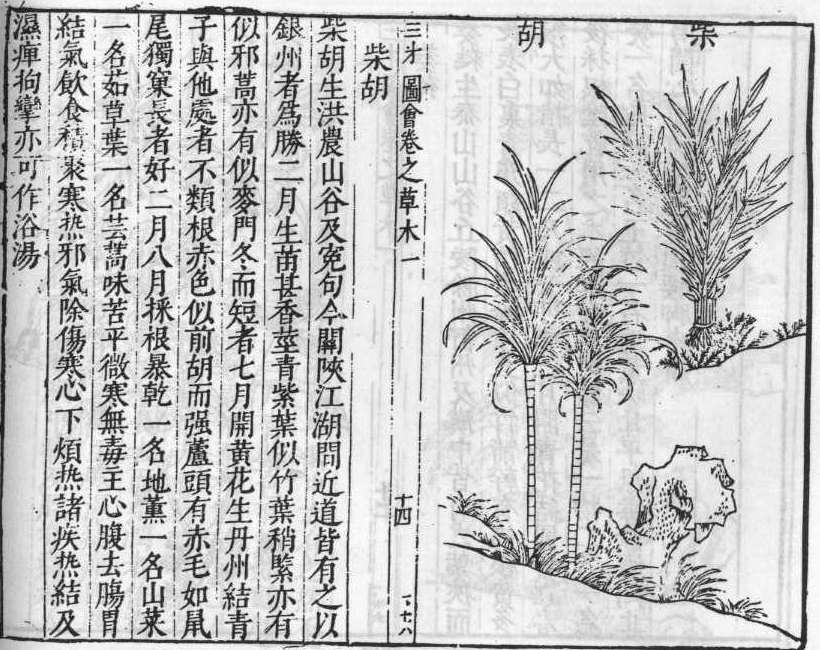 柴胡
三才圖會卷之草木一
十四
柴胡
柴胡生洪農山谷及寃句今關陝江湖間近道皆有之以
銀州者爲勝二月生苗甚香莖青紫葉似竹葉稍緊亦有
似邪蒿亦有似麥門冬而短者七月開黃花生丹州結青
子與他處者不類根赤色似前胡而强蘆頭有赤毛如鼠
尾獨窠長者好二月八月採根暴乾一名地薰一名山菜
一名茹草葉一名芸蒿味苦平微寒無毒主心腹去腸胃
結氣飲食積聚寒热邪氣除傷寒心下煩热諸疾热結及
濕痺拘攣亦可作浴湯